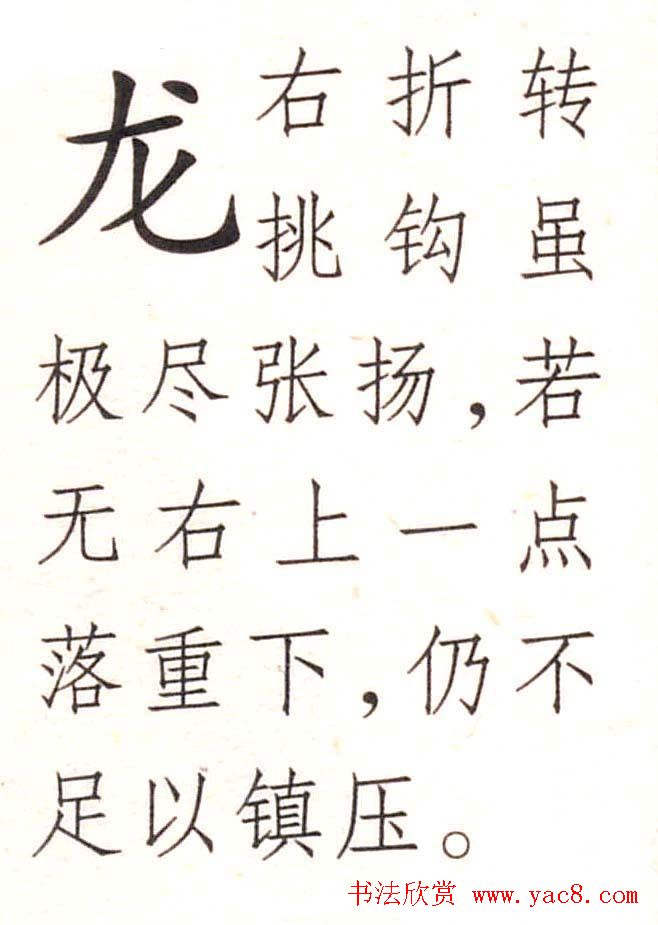 龙
右折转
挑钩虽
极尽张扬，若
无右上一点
落重下，仍不
足以镇压。
书法欣赏 www.yac8.com